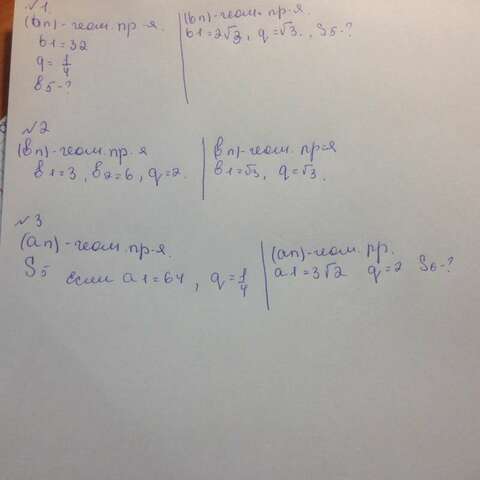 №1.
(bn)-геом. пр-я.
b1=32
q=1/4
b5-?
(bn)-геом. пр-я.
b1=2√3, q=√3., S5-?
№2
(bn)-геом. пр-я
b1=3, b2=6, q=2.
bn)-геом. пр-я
b1=√3, q=√3.
№3
(an)-геом. пр-я.
S5 если a1=64, q=1/4
(an)-геом. пр.
a1=3√2 q=2 S6-?